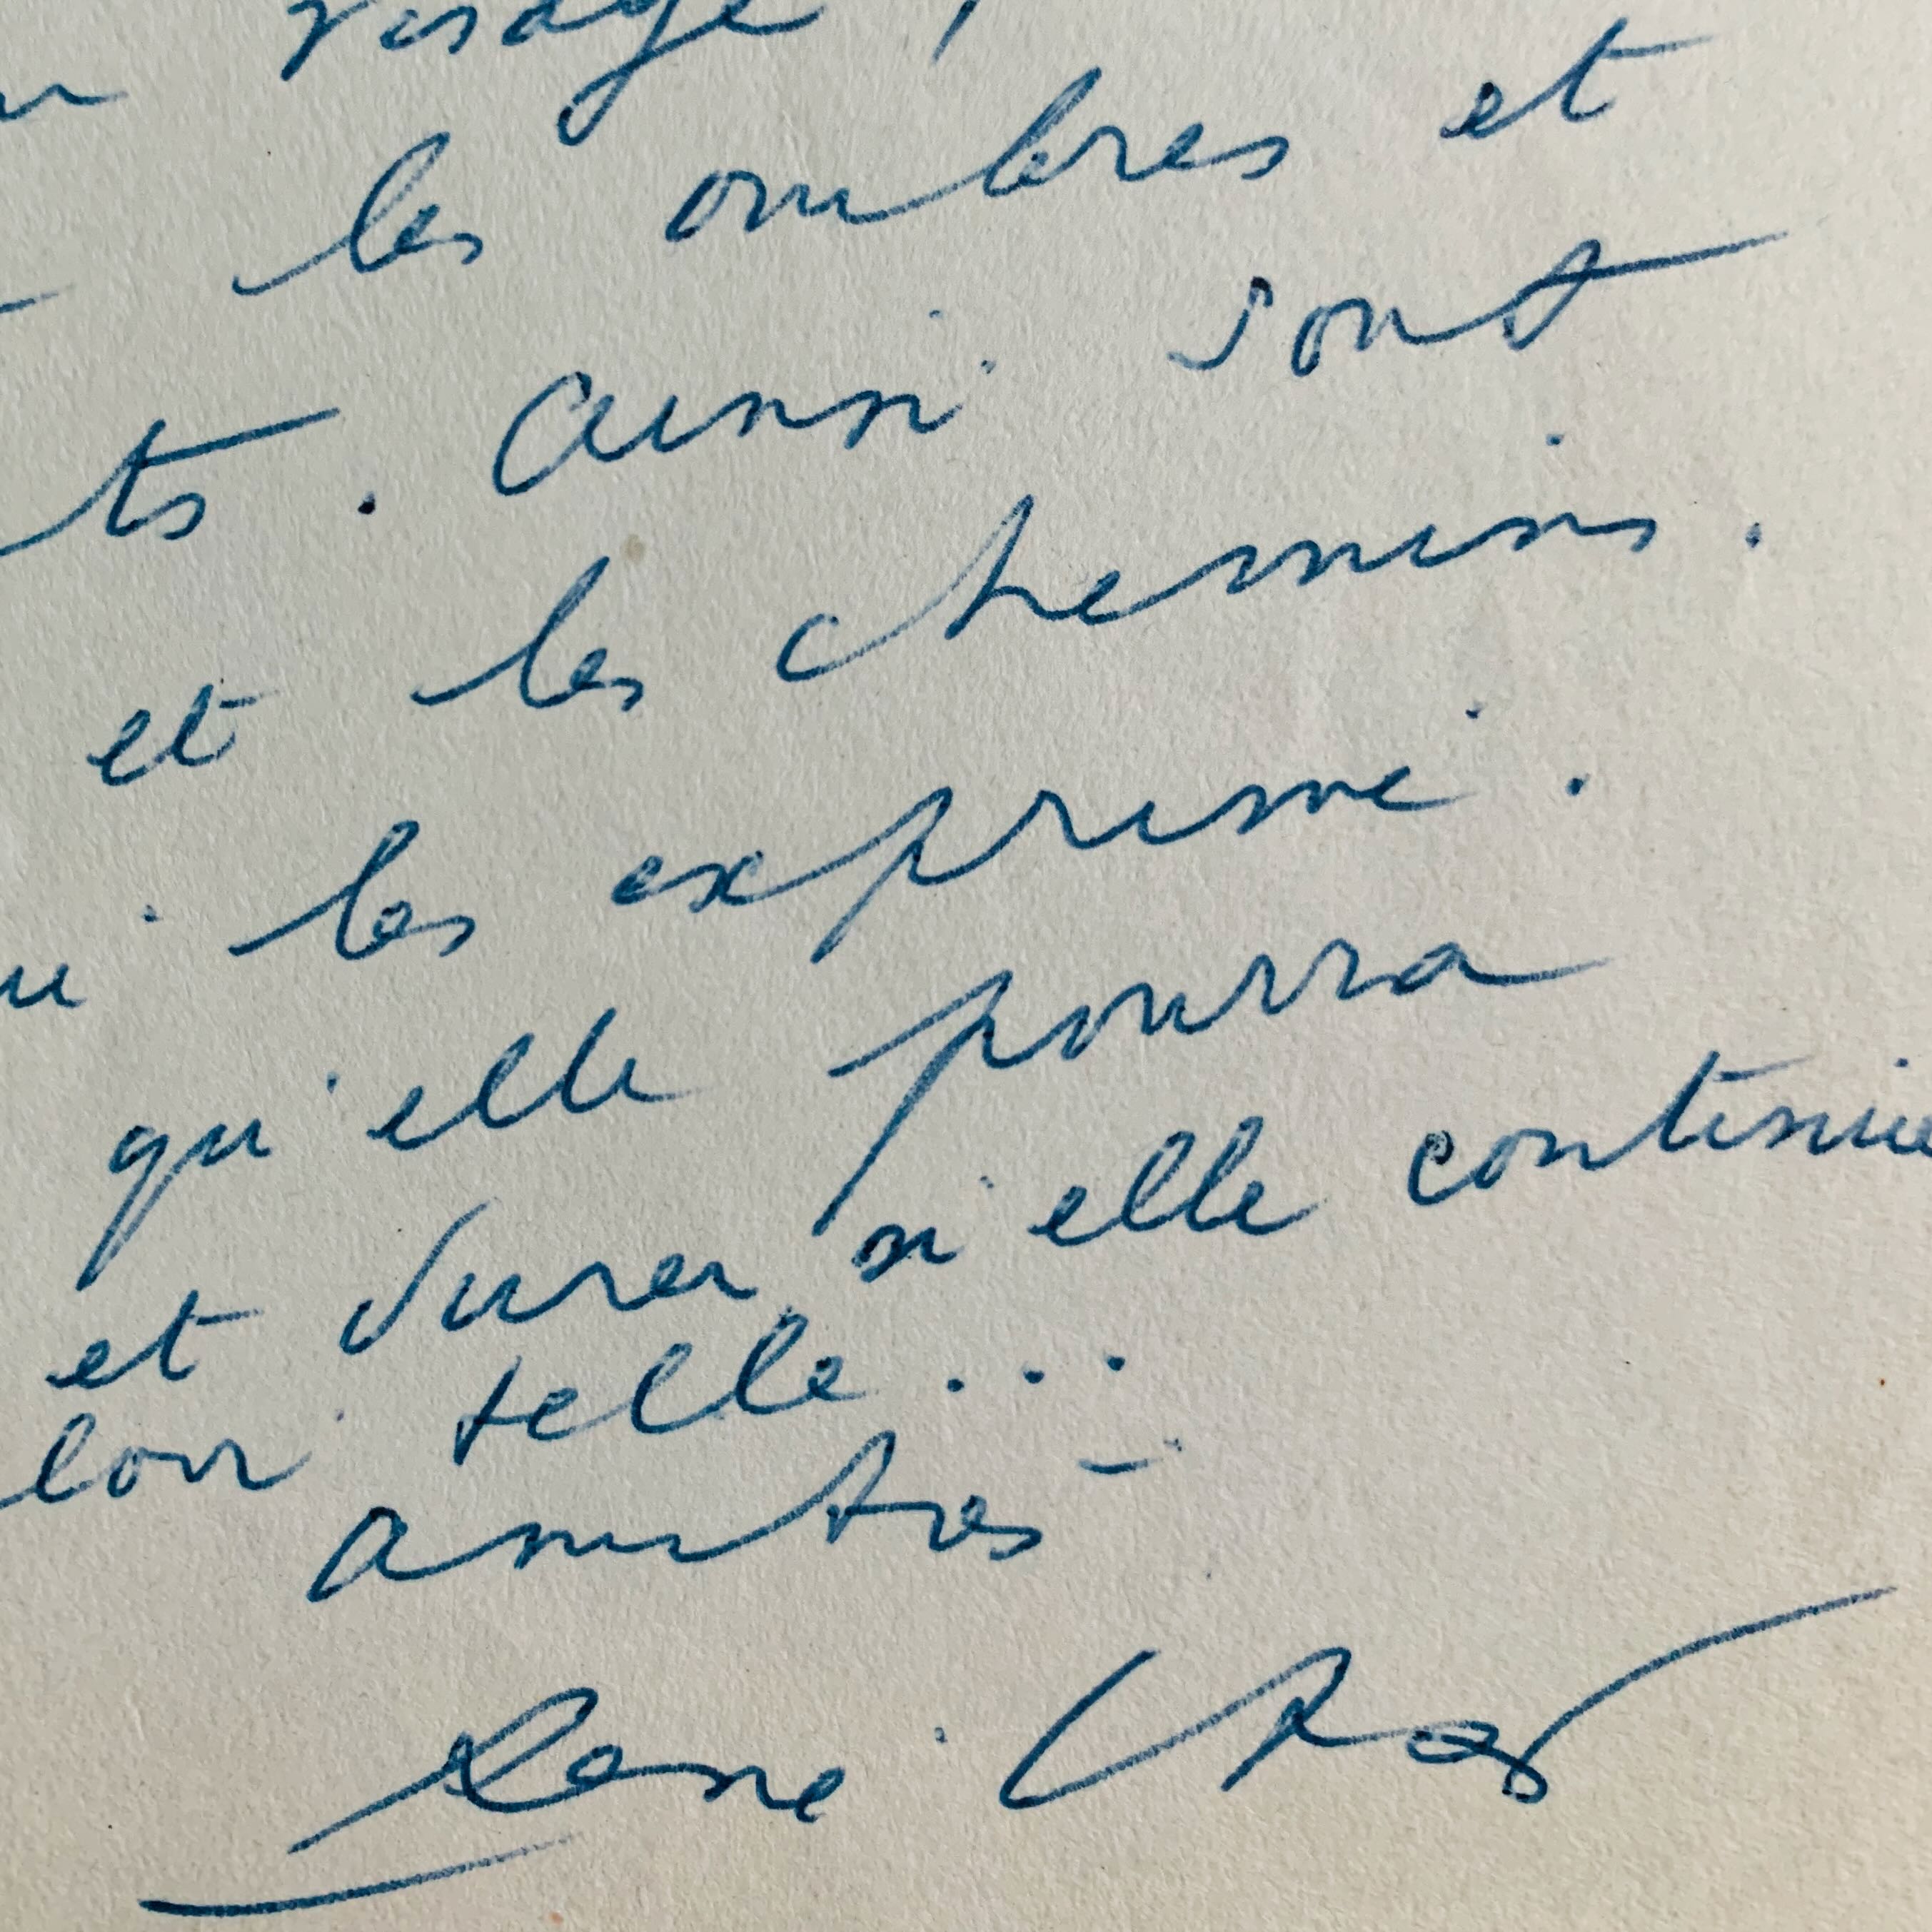 visage,
les ombres et
ts. Aussi sont
et les chemins.
les exprime.
qu'elle pourra
et durer si elle continue
loir telle...
amitiés -
René Char